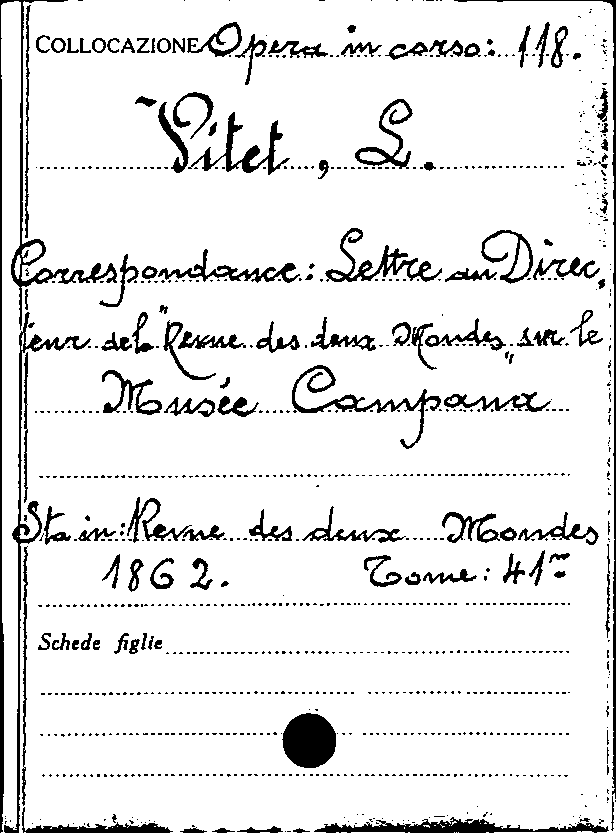 COLLOCAZIONE Opera in corso: 118.
Vitet, L.
Correspondance: Lettre au Direc,
teur de la "Revue des deux Mondes" sur le
Musée Campana
Sta in: Revue des deux Mondes
1862. Tome: 41me
Schede figlie